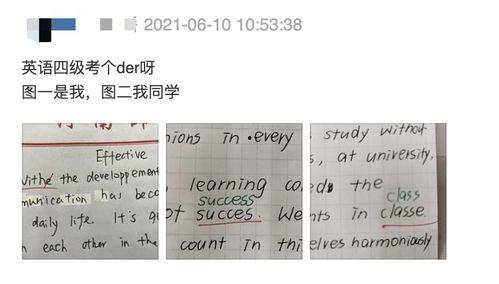 2021-06-10 10:53:38
英语四级考个der呀
图一是我，图二我同学
Effective
withe the developpement
munication has beco
daily life. It's q
n each other in the
nions in every
learning co
success
ot succes. We
count in thi
study without
s, at university,
ed the
class
nts in classe
elves harmoniously